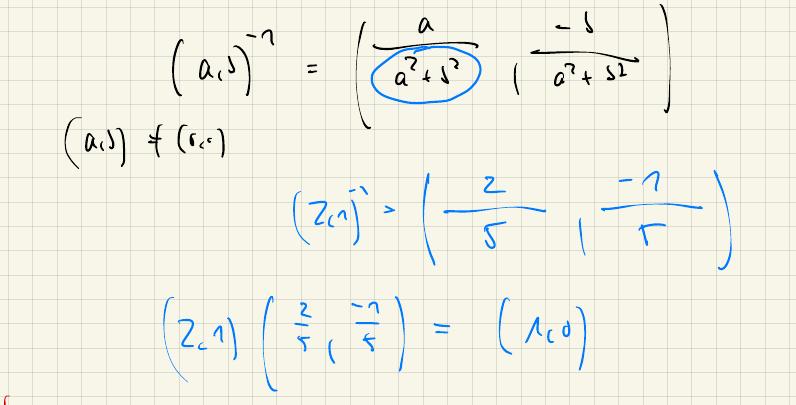 (a,b)⁻¹ = (a/(a²+b²), -b/(a²+b²))
(a,b) ≠ (0,0)
(2,1)⁻¹ = (2/5, -1/5)
(2,1) (2/5, -1/5) = (1,0)